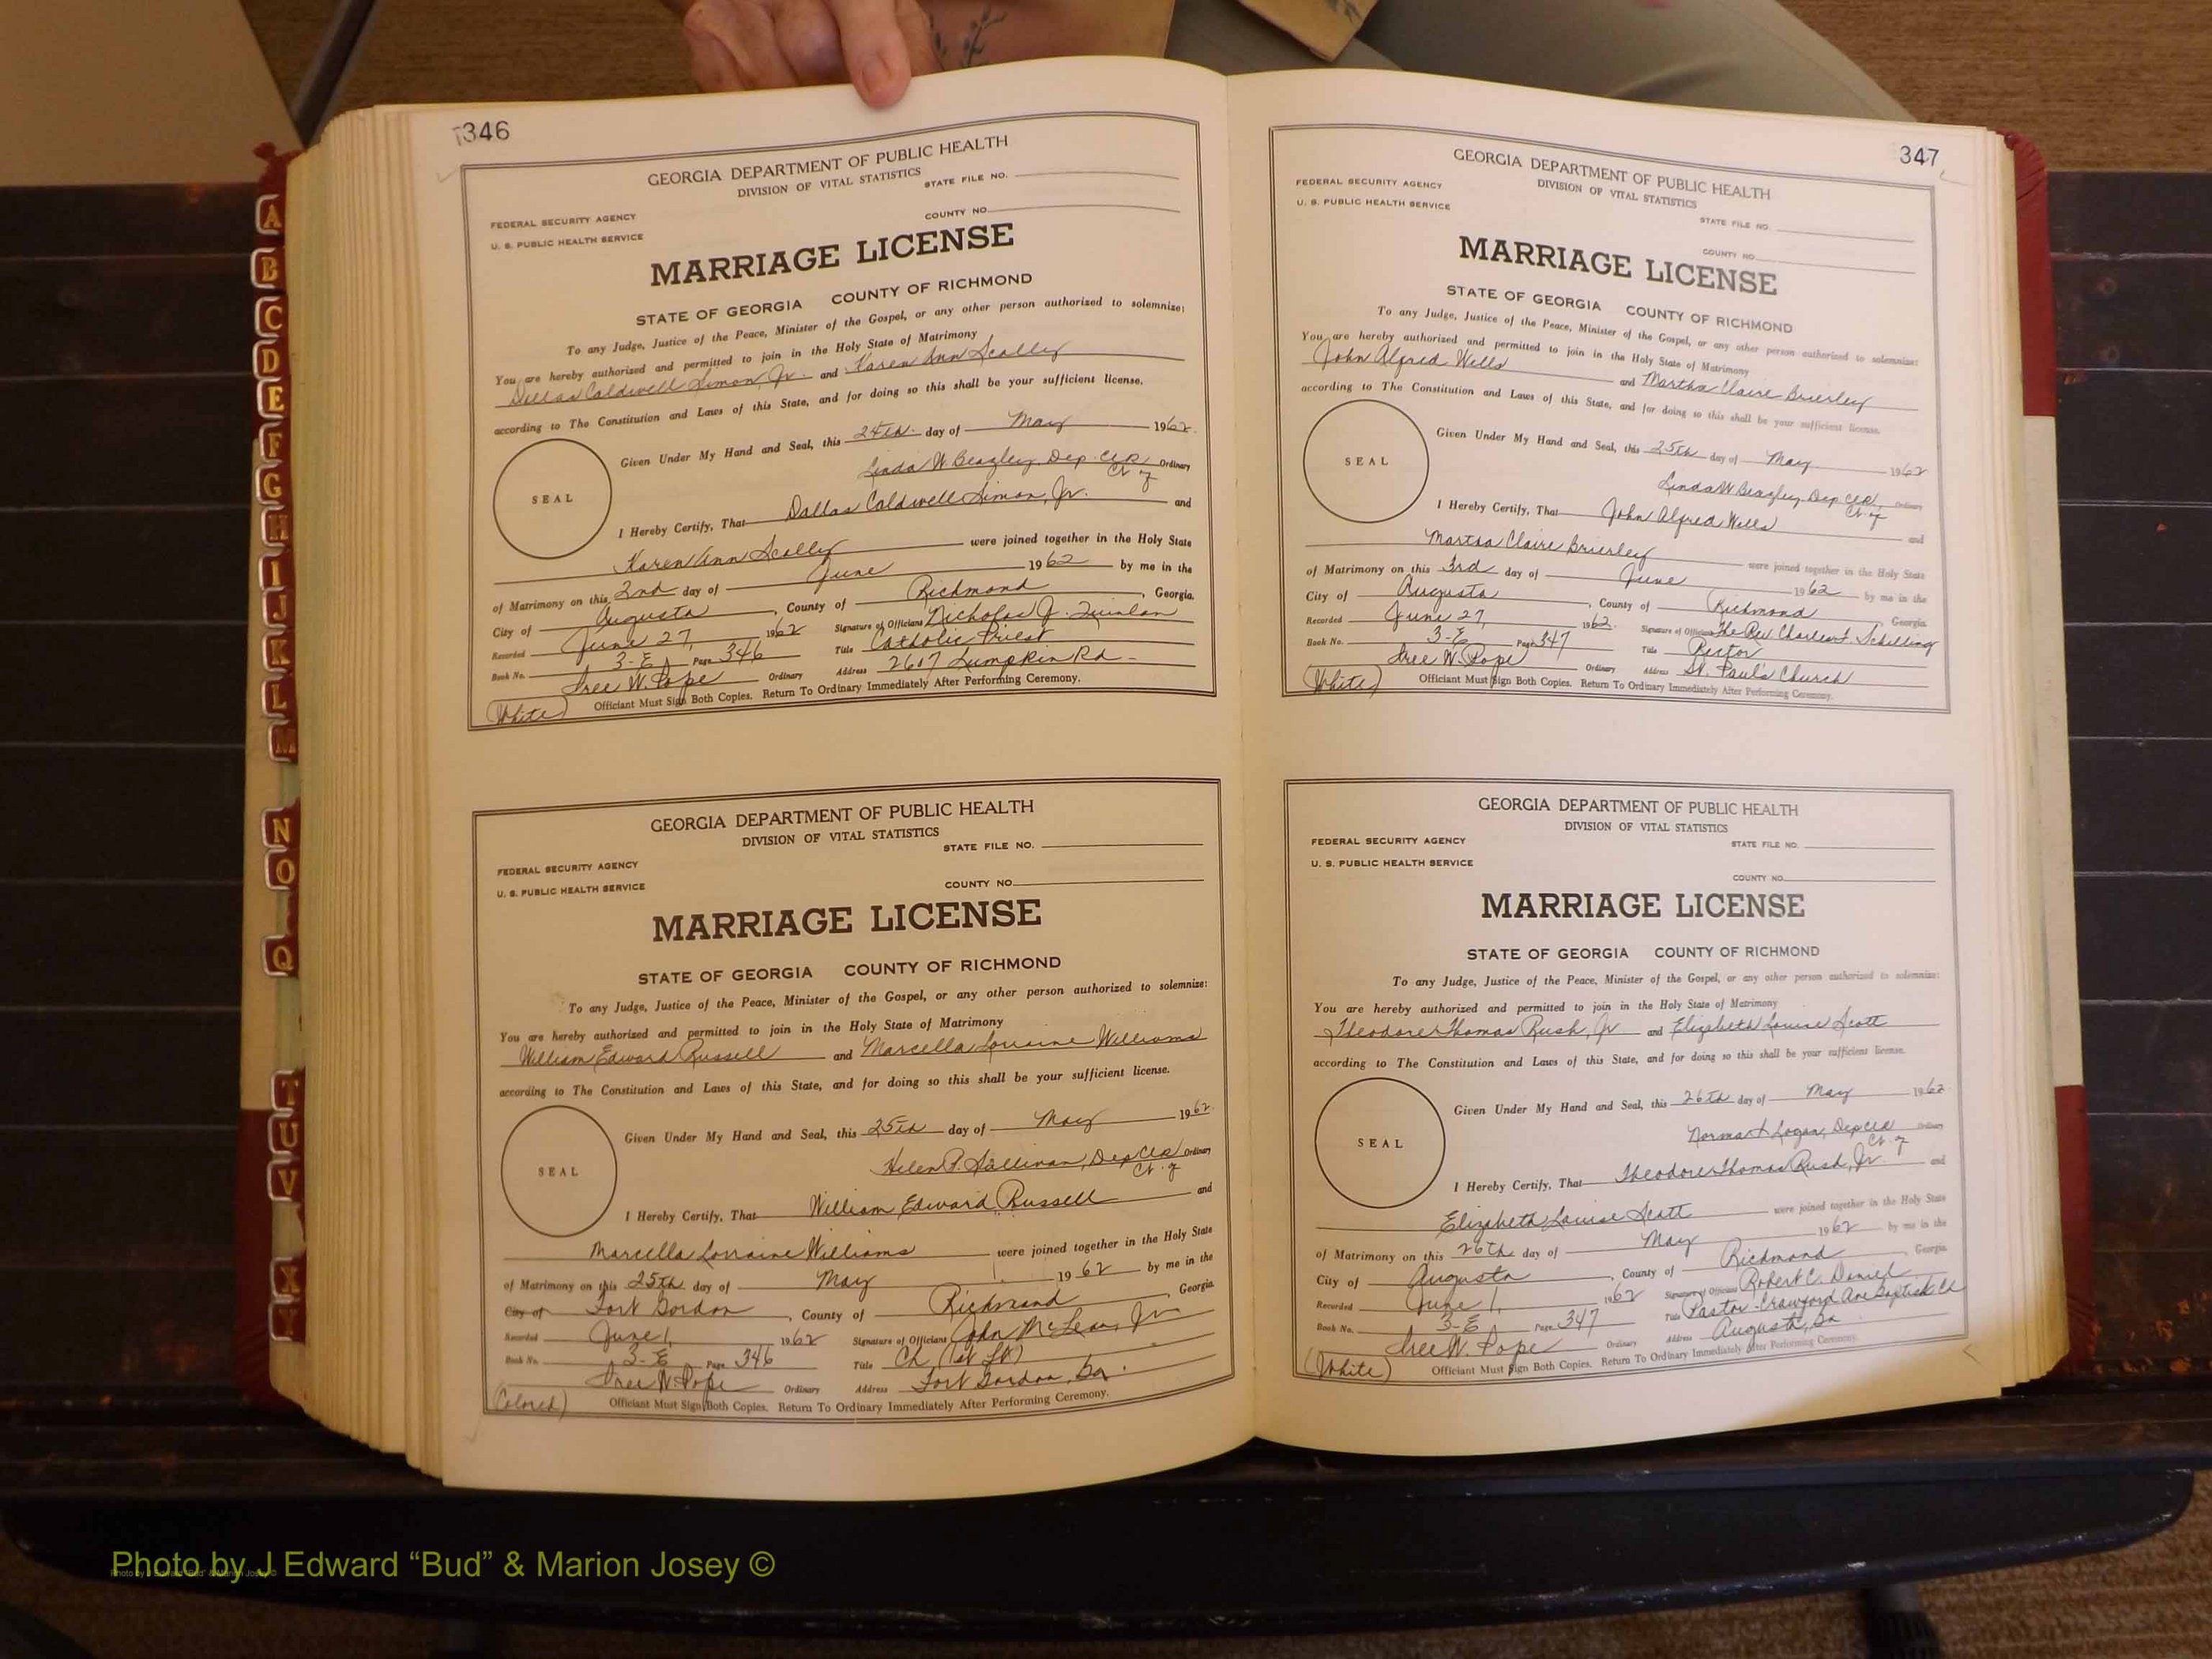 346
GEORGIA DEPARTMENT OF PUBLIC HEALTH
DIVISION OF VITAL STATISTICS
STATE FILE NO.
FEDERAL SECURITY AGENCY
COUNTY NO.
U. S. PUBLIC HEALTH SERVICE
MARRIAGE LICENSE
STATE OF GEORGIA COUNTY OF RICHMOND
To any Judge, Justice of the Peace, Minister of the Gospel, or any other person authorized to solemnize:
You are hereby authorized and permitted to join in the Holy State of Matrimony
Dallas Caldwell Simon, Jr. and Karen Ann Scally
according to The Constitution and Laws of this State, and for doing so this shall be your sufficient license.
Given Under My Hand and Seal, this 24th day of May 1962
Linda W. Beazley, Dep. Clk. Ordinary
Ct. of
SEAL
I Hereby Certify, That Dallas Caldwell Simon, Jr. and
Karen Ann Scally were joined together in the Holy State
of Matrimony on this 2nd day of June 1962 by me in the
City of Augusta, County of Richmond, Georgia.
Recorded June 27, 1962 Signature of Officiant Nicholas J. Quinlan
Book No. 3-E Page 346 Title Catholic Priest
Iree W. Pope Ordinary Address 2607 Lumpkin Rd
(White) Officiant Must Sign Both Copies. Return To Ordinary Immediately After Performing Ceremony.
GEORGIA DEPARTMENT OF PUBLIC HEALTH
DIVISION OF VITAL STATISTICS
STATE FILE NO.
FEDERAL SECURITY AGENCY
COUNTY NO.
U. S. PUBLIC HEALTH SERVICE
MARRIAGE LICENSE
STATE OF GEORGIA COUNTY OF RICHMOND
To any Judge, Justice of the Peace, Minister of the Gospel, or any other person authorized to solemnize:
You are hereby authorized and permitted to join in the Holy State of Matrimony
William Edward Russell and Marcella Lorraine Williams
according to The Constitution and Laws of this State, and for doing so this shall be your sufficient license.
Given Under My Hand and Seal, this 25th day of May 1962
Helen P. Sullivan, Dep Clk Ordinary
Ct. of
SEAL
I Hereby Certify, That William Edward Russell and
Marcella Lorraine Williams were joined together in the Holy State
of Matrimony on this 25th day of May 1962 by me in the
City of Fort Gordon, County of Richmond, Georgia
Recorded June 1, 1962 Signature of Officiant John McLean, Jr
Book No. 3-E Page 346 Title Ch (1st Lt)
Iree W Pope Ordinary Address Fort Gordon, Ga.
(Colored) Officiant Must Sign Both Copies. Return To Ordinary Immediately After Performing Ceremony.
347
GEORGIA DEPARTMENT OF PUBLIC HEALTH
DIVISION OF VITAL STATISTICS
FEDERAL SECURITY AGENCY
U. S. PUBLIC HEALTH SERVICE
STATE FILE NO.
COUNTY NO.
MARRIAGE LICENSE
STATE OF GEORGIA COUNTY OF RICHMOND
To any Judge, Justice of the Peace, Minister of the Gospel, or any other person authorized to solemnize:
You are hereby authorized and permitted to join in the Holy State of Matrimony
John Alfred Wells and Martha Claire Brierley
according to The Constitution and Laws of this State, and for doing so this shall be your sufficient license.
Given Under My Hand and Seal, this 25th day of May 1962
Linda W Beazley, Dep Clk, Ordinary
Ct. of
SEAL
I Hereby Certify, That John Alfred Wells and
Martha Claire Brierley were joined together in the Holy State
of Matrimony on this 3rd day of June 1962 by me in the
City of Augusta, County of Richmond, Georgia
Recorded June 27, 1962 Signature of Officiant The Rev Charles F. Schilling
Book No. 3-E Page 347 Title Rector
Iree W. Pope Ordinary Address St. Paul's Church
(White) Officiant Must Sign Both Copies. Return To Ordinary Immediately After Performing Ceremony.
GEORGIA DEPARTMENT OF PUBLIC HEALTH
DIVISION OF VITAL STATISTICS
FEDERAL SECURITY AGENCY
STATE FILE NO.
U. S. PUBLIC HEALTH SERVICE
COUNTY NO.
MARRIAGE LICENSE
STATE OF GEORGIA COUNTY OF RICHMOND
To any Judge, Justice of the Peace, Minister of the Gospel, or any other person authorized to solemnize:
You are hereby authorized and permitted to join in the Holy State of Matrimony
Theodore Thomas Rush, Jr and Elizabeth Louise Scott
according to The Constitution and Laws of this State, and for doing so this shall be your sufficient license.
Given Under My Hand and Seal, this 26th day of May 1962
Norma L Logan, Dep Clk Ordinary
Ct. of
SEAL
I Hereby Certify, That Theodore Thomas Rush, Jr. and
Elizabeth Louise Scott were joined together in the Holy State
of Matrimony on this 26th day of May 1962 by me in the
City of Augusta, County of Richmond, Georgia
Recorded June 1, 1962 Signature of Officiant Robert C. Daniel
Book No. 3-E Page 347 Title Pastor-Crawford Ave Baptist Ch
Iree W. Pope Ordinary Address Augusta, Ga
(White) Officiant Must Sign Both Copies. Return To Ordinary Immediately After Performing Ceremony.
A
B
C
D
E
F
G
H
I
J
K
L
M
N
O
Q
T
U
V
X
Y
Photo by J Edward “Bud” & Marion Josey ©
Photo by J Edward “Bud” & Marion Josey ©